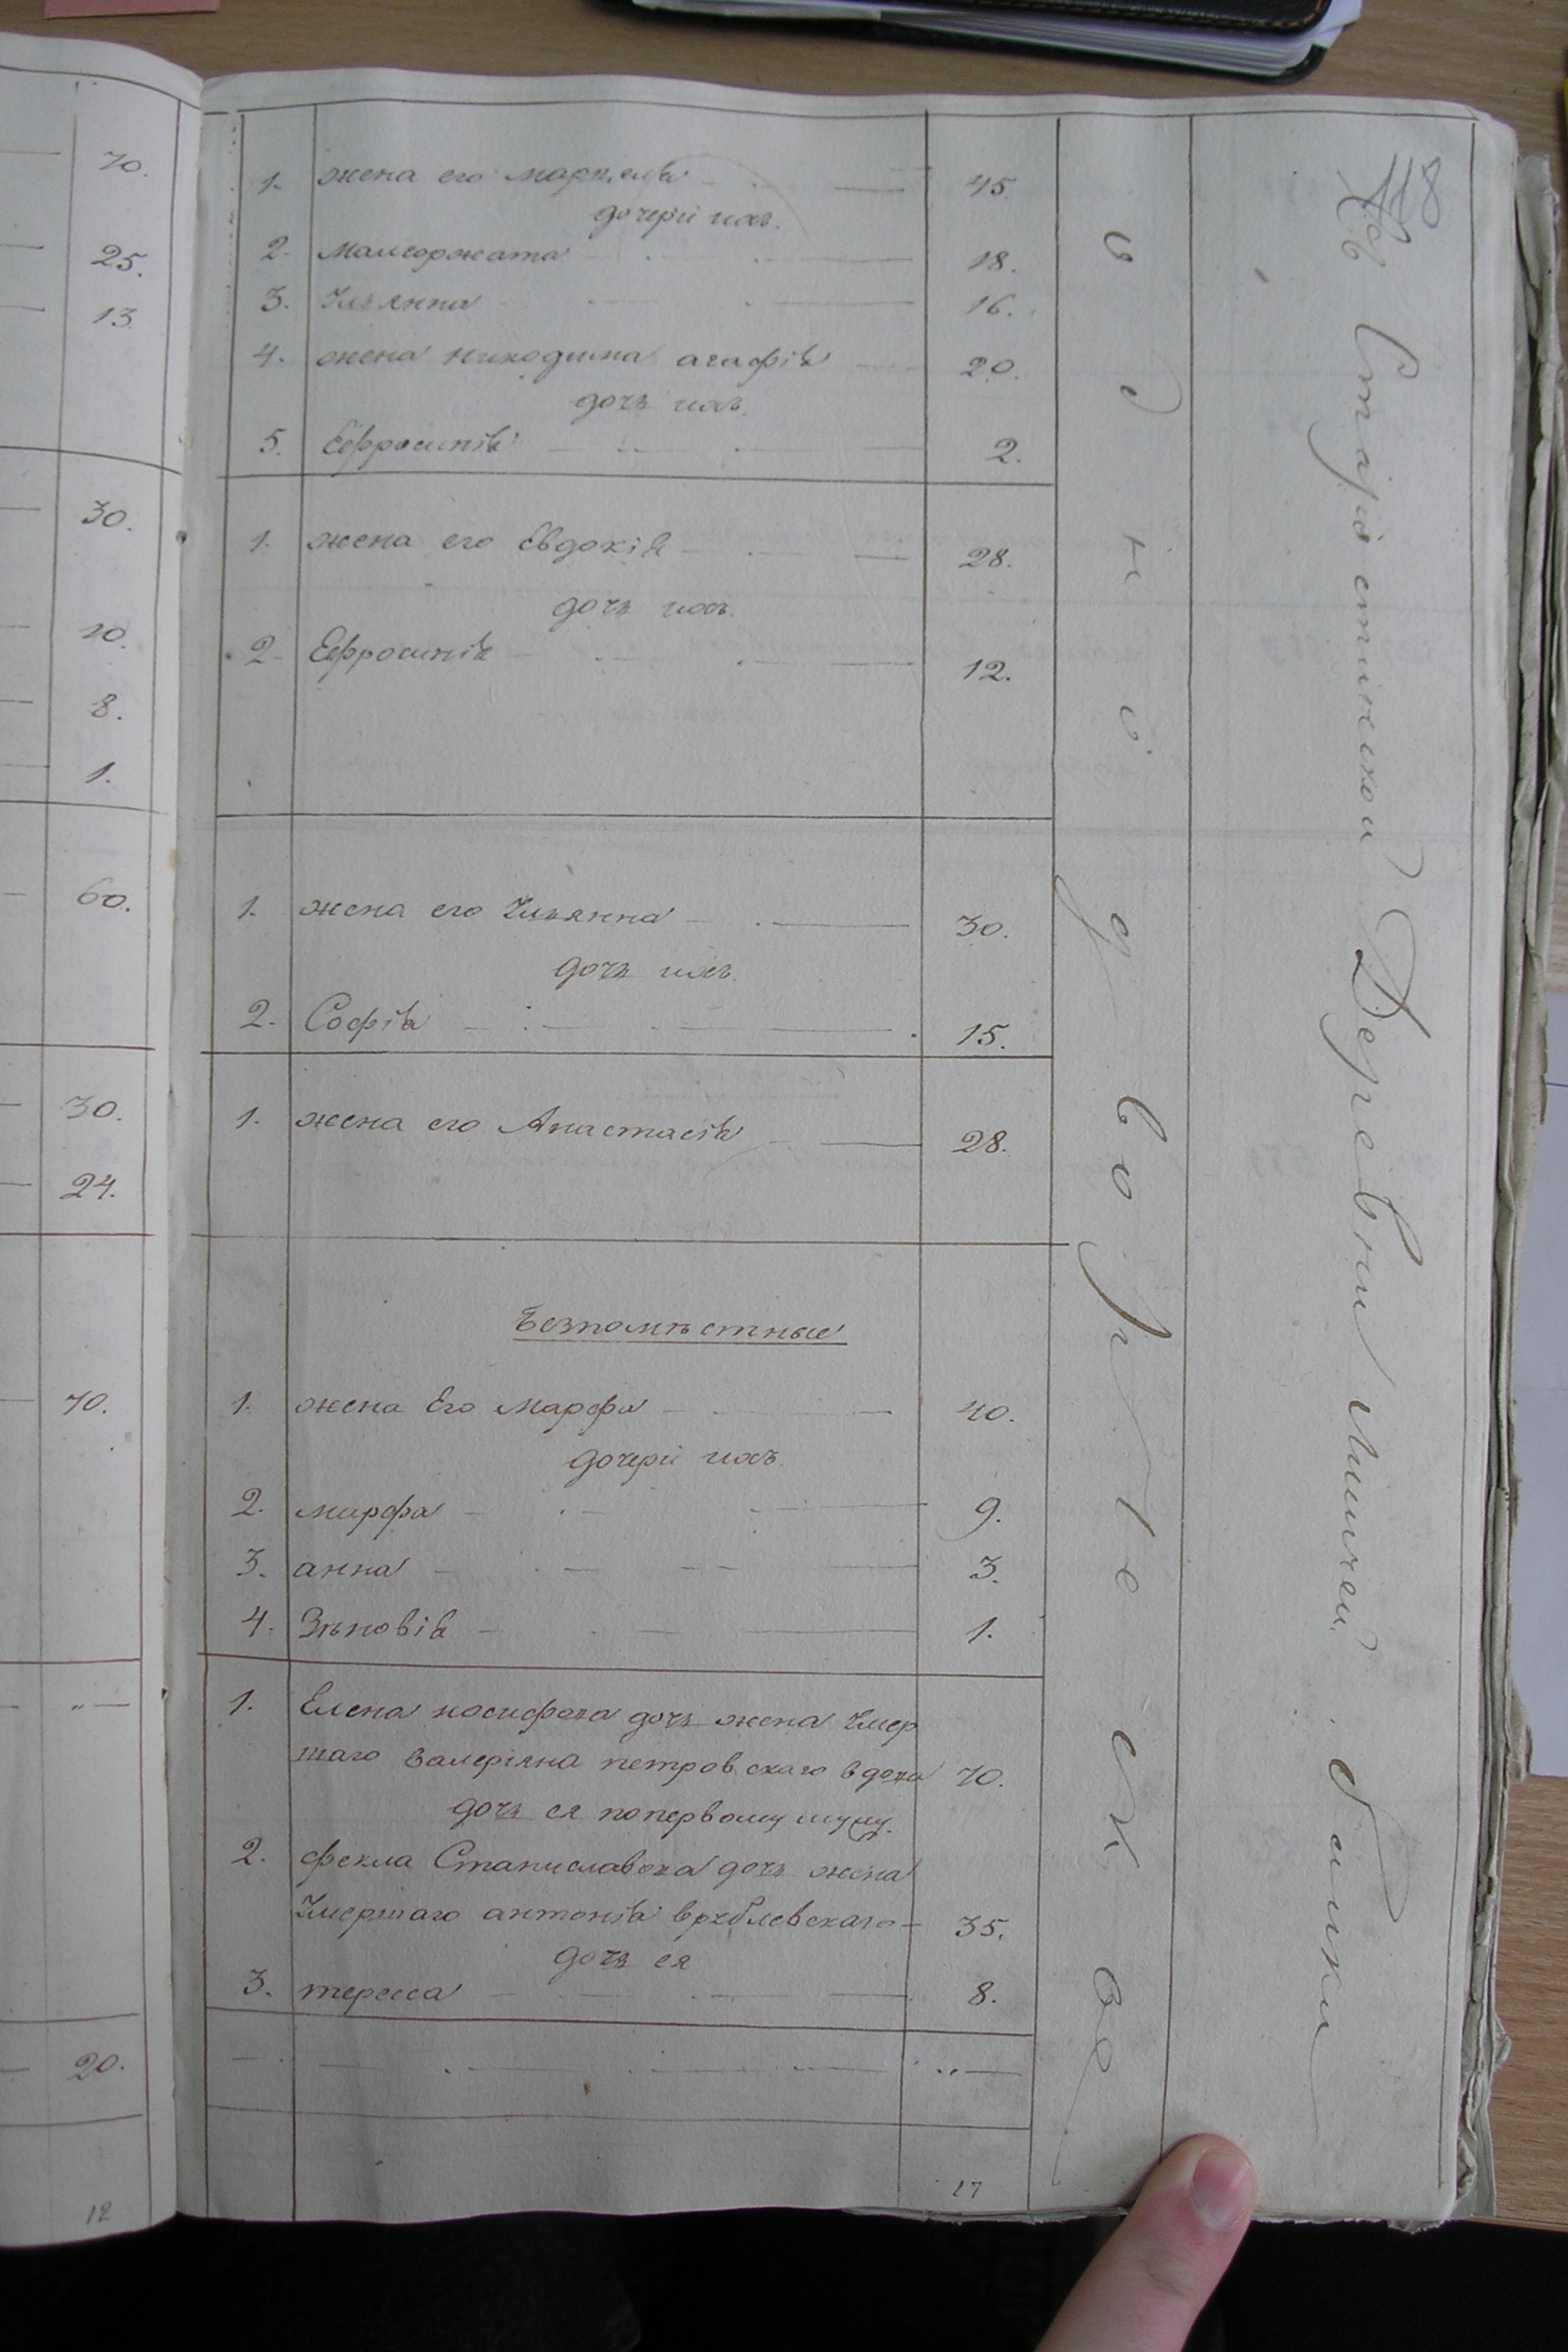 118
70.
25.
13.
30.
10.
8.
1.
60.
30.
24.
70.
"—
20.
12
1. жена его — 45.
дочери ихъ.
2. малгоржата — 18.
3. Ульянна — 16.
4. жена никодима агафія — 20.
дочь ихъ.
5. Ефросинія — 2.
1. жена его Евдокія — 28.
дочь ихъ.
2. Ефросинія — 12.
1. жена его Ульянна — 30.
дочь ихъ.
2. Софія — 15.
1. жена его Анастасія — 28.
Безпоместные
1. жена Его Марфа — 40.
дочери ихъ
2. марфа — 9.
3. анна — 3.
4. Зѣновія — 1.
1. Елена дочь жена Умер
шаго валеріяна петровскаго вдова 70.
дочь ея попервому мужу.
2. фекла Станиславова дочь жена
Умершаго антонія врублевскаго — 35.
дочь ея
3. тересса — 8.
"—
17
одно дворческ
Въ Деревни